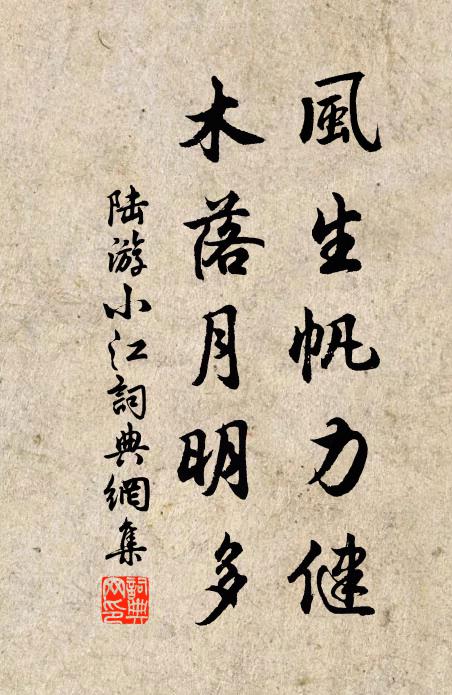 風生帆力健
木落月明多
陆游小江詞典網集
詞典网印